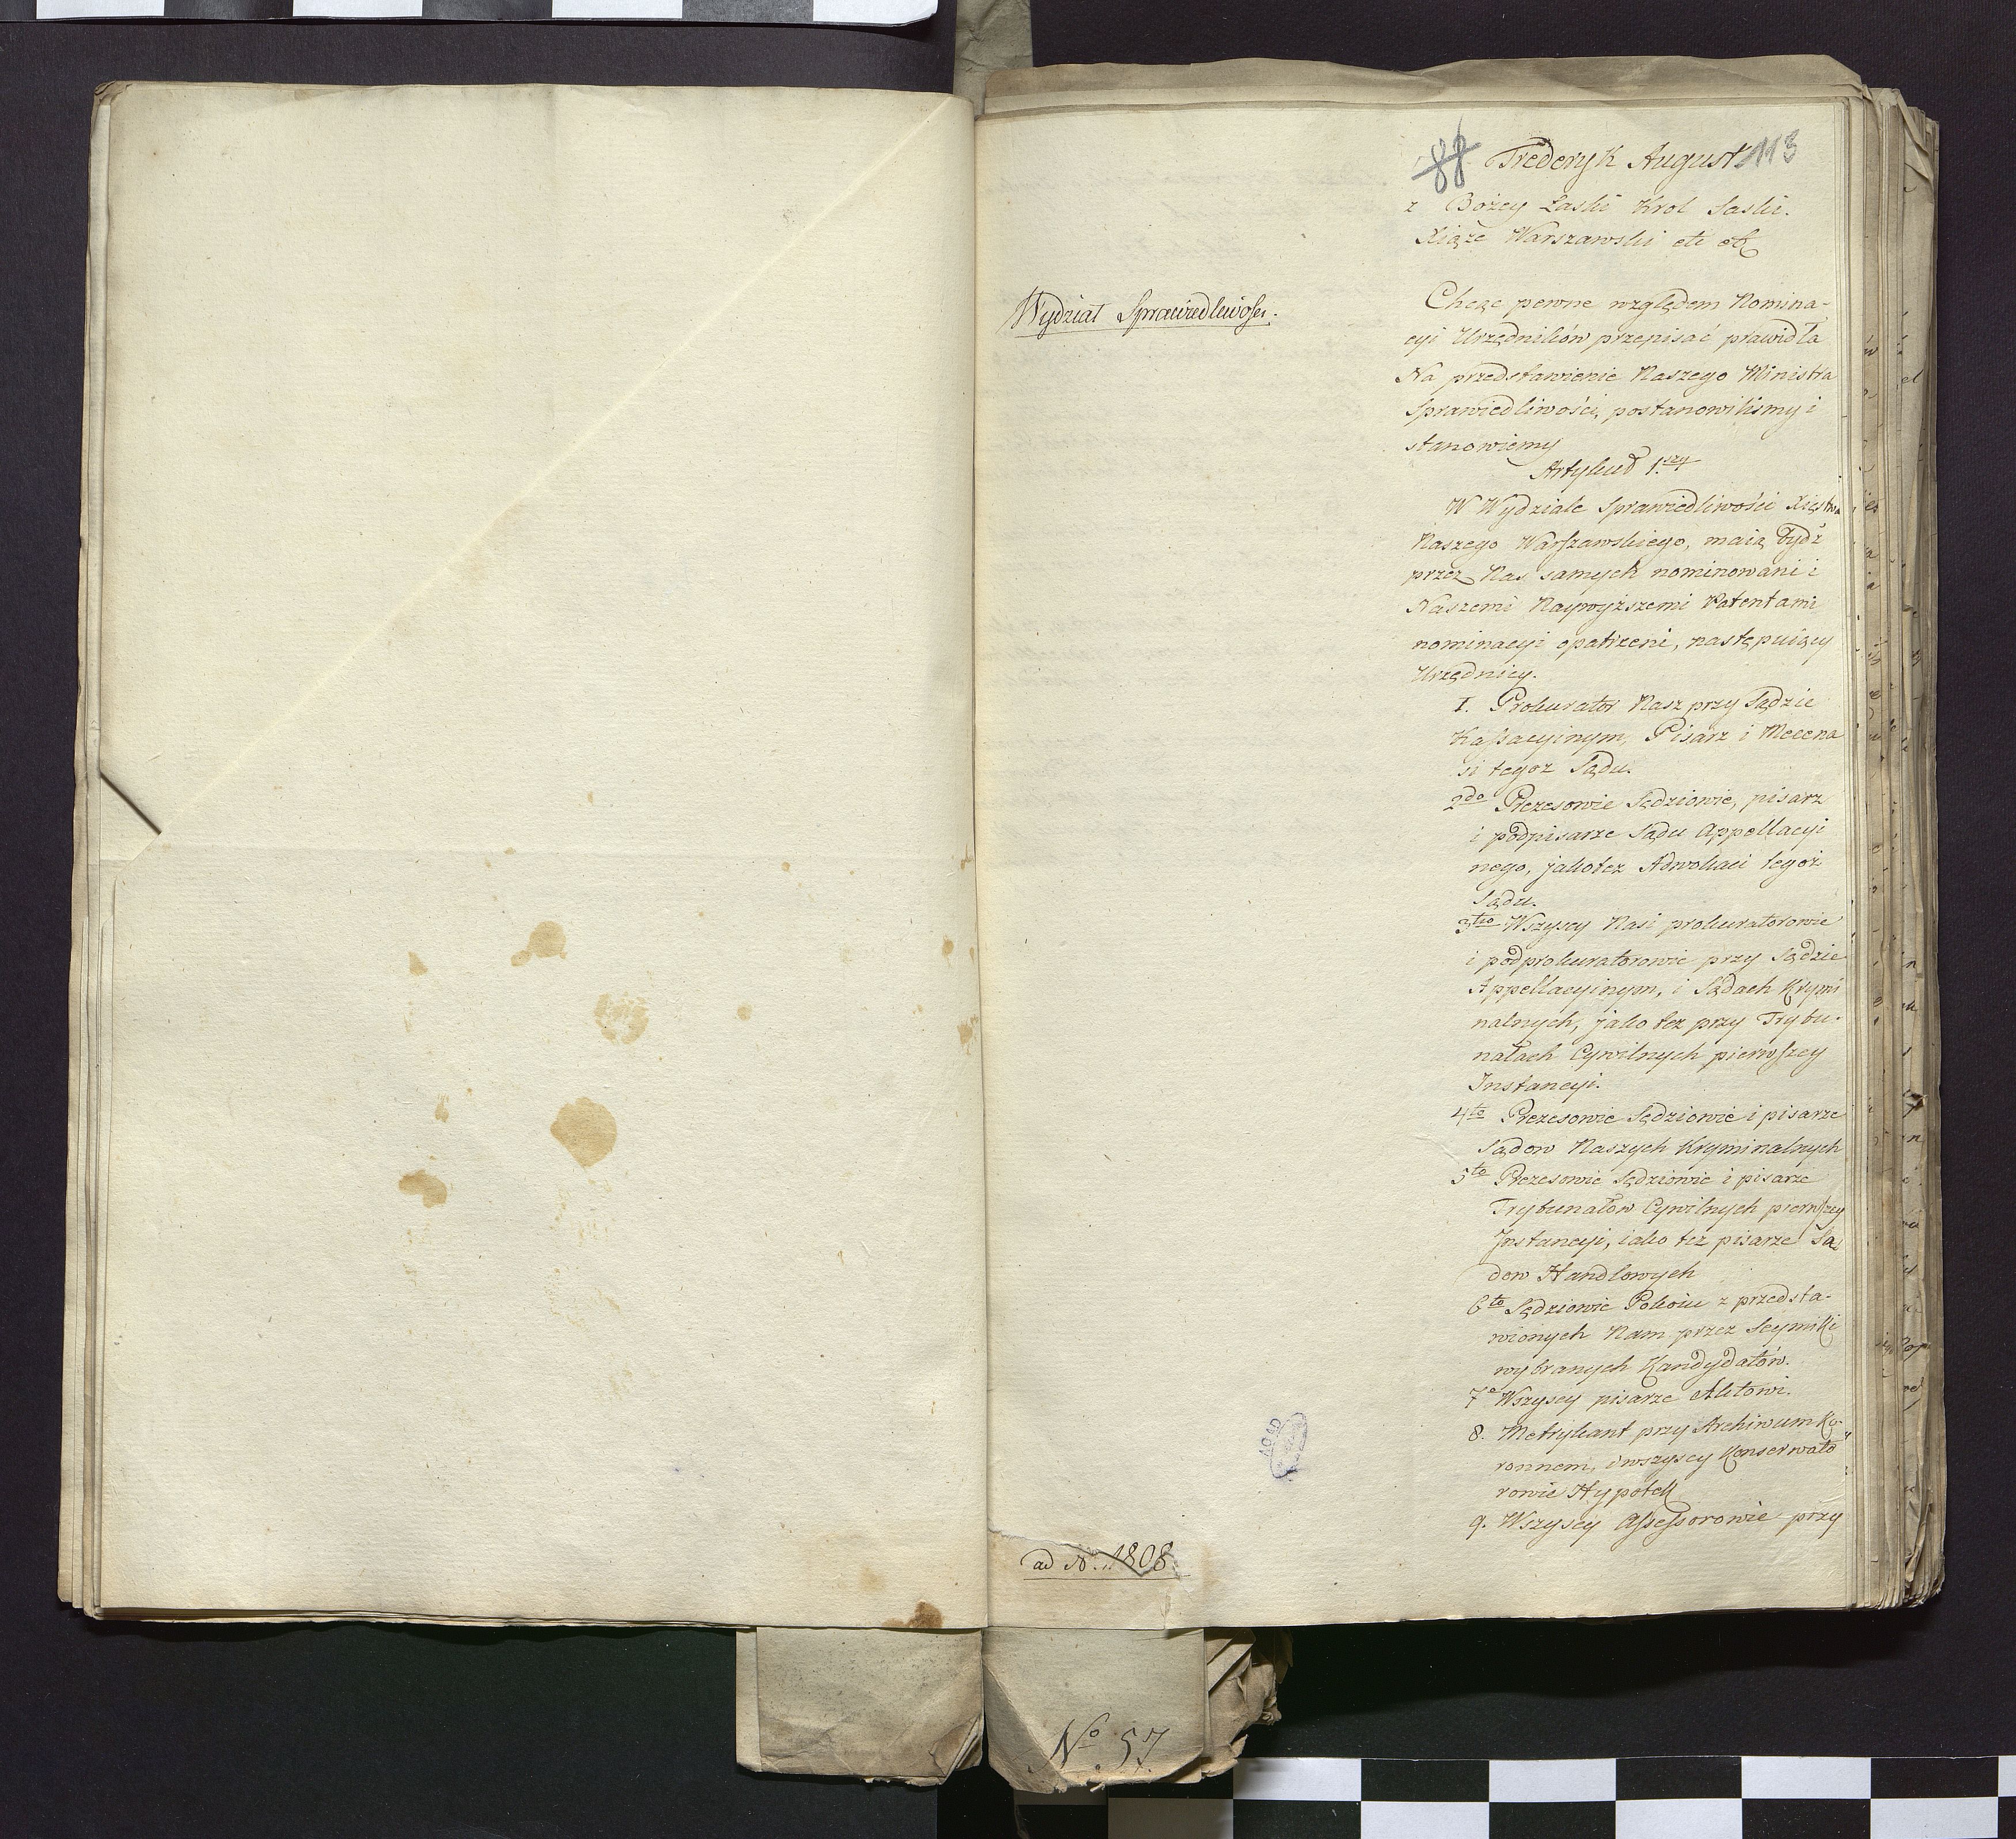 88 Frederyk August 113
z Bożey Łaski Krol Saski.
Xiąże Warszawski etc etc
Wydział Sprawiedliwości.
Chcąc pewne względem Nomina-
cyi Urzędników przepisać prawidła
Na przedstawienie Naszego Ministra
Sprawiedliwości, postanowilismy i
stanowiemy
Artykuł 1.szy
W Wydziale Sprawiedliwości Xięstwa
Naszego Warszawskiego, maią bydź
przez Nas samych nominowani i
Naszemi Naywyższemi Patentami
nominacyi opatrzeni, następuiący
Urzędnicy.
I. Prokurator Nasz przy Sądzie
Kassacyinym, Pisarz i Mecena
si tegoz Sądu.
2do Prezesowie Sędziowie, pisarz
i podpisarze Sądu Appellacyi
nego, jakotez Adwokaci tegoż
Sądu.
3tio Wszyscy Nasi prokuratorowie
i podprokuratorowie przy Sądzie
Appellacyinym, i Sądach Krymi
nalnych, jako tez przy Trybu-
nałach Cywilnych pierwszey
Instancyi.
4to Prezesowie Sędziowie i pisarze
Sądow Naszych Kryminalnych
5to Prezesowie Sędziowie i pisarze
Trybunałow Cywilnych pierwszey
Instancyi, iako tez pisarze Są
dow Handlowych
6to Sędziowie Pokoiu z przedsta-
wionych Nam przez Seymiki
wybranych Kandydatów.
7o Wszyscy pisarze Aktowi.
8. Metrykant przy Archiwum Ko-
ronnem, i wszyscy Konserwato
rowie Hypotek
9. Wszyscy Assessorowie przy
AGAD
ad No. 1808
No 57